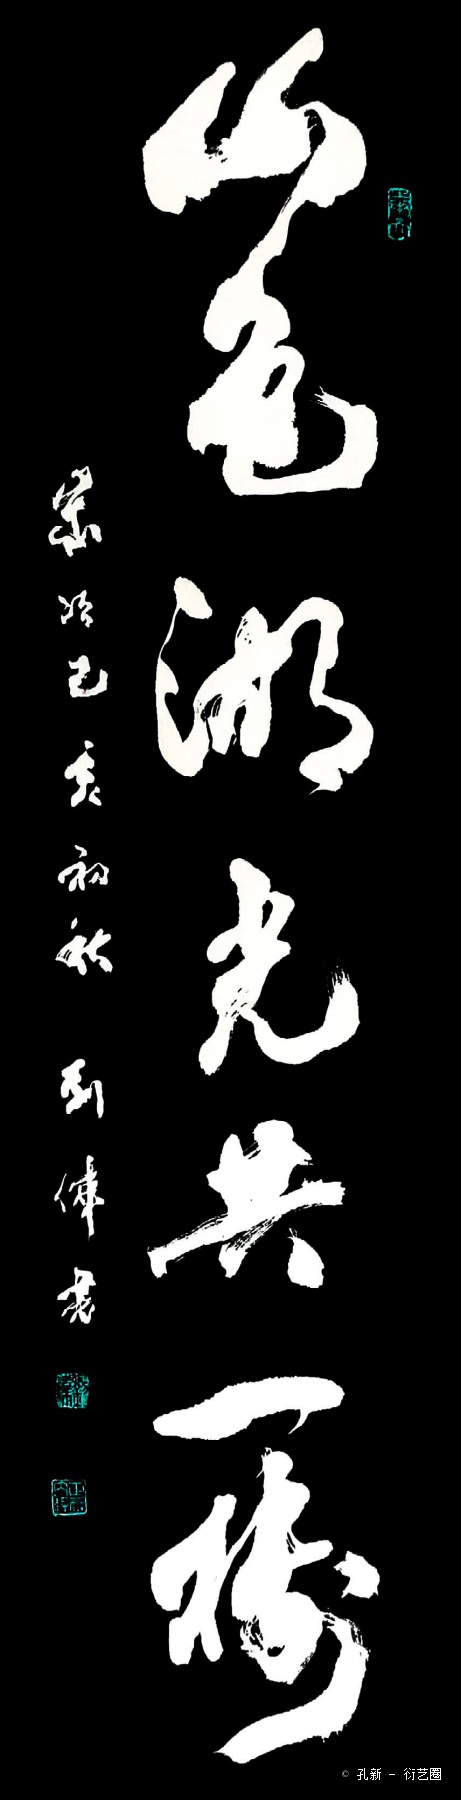 山色湖光共一樓
歲次己亥初秋 劉偉書
© 孔新 - 衍艺圈